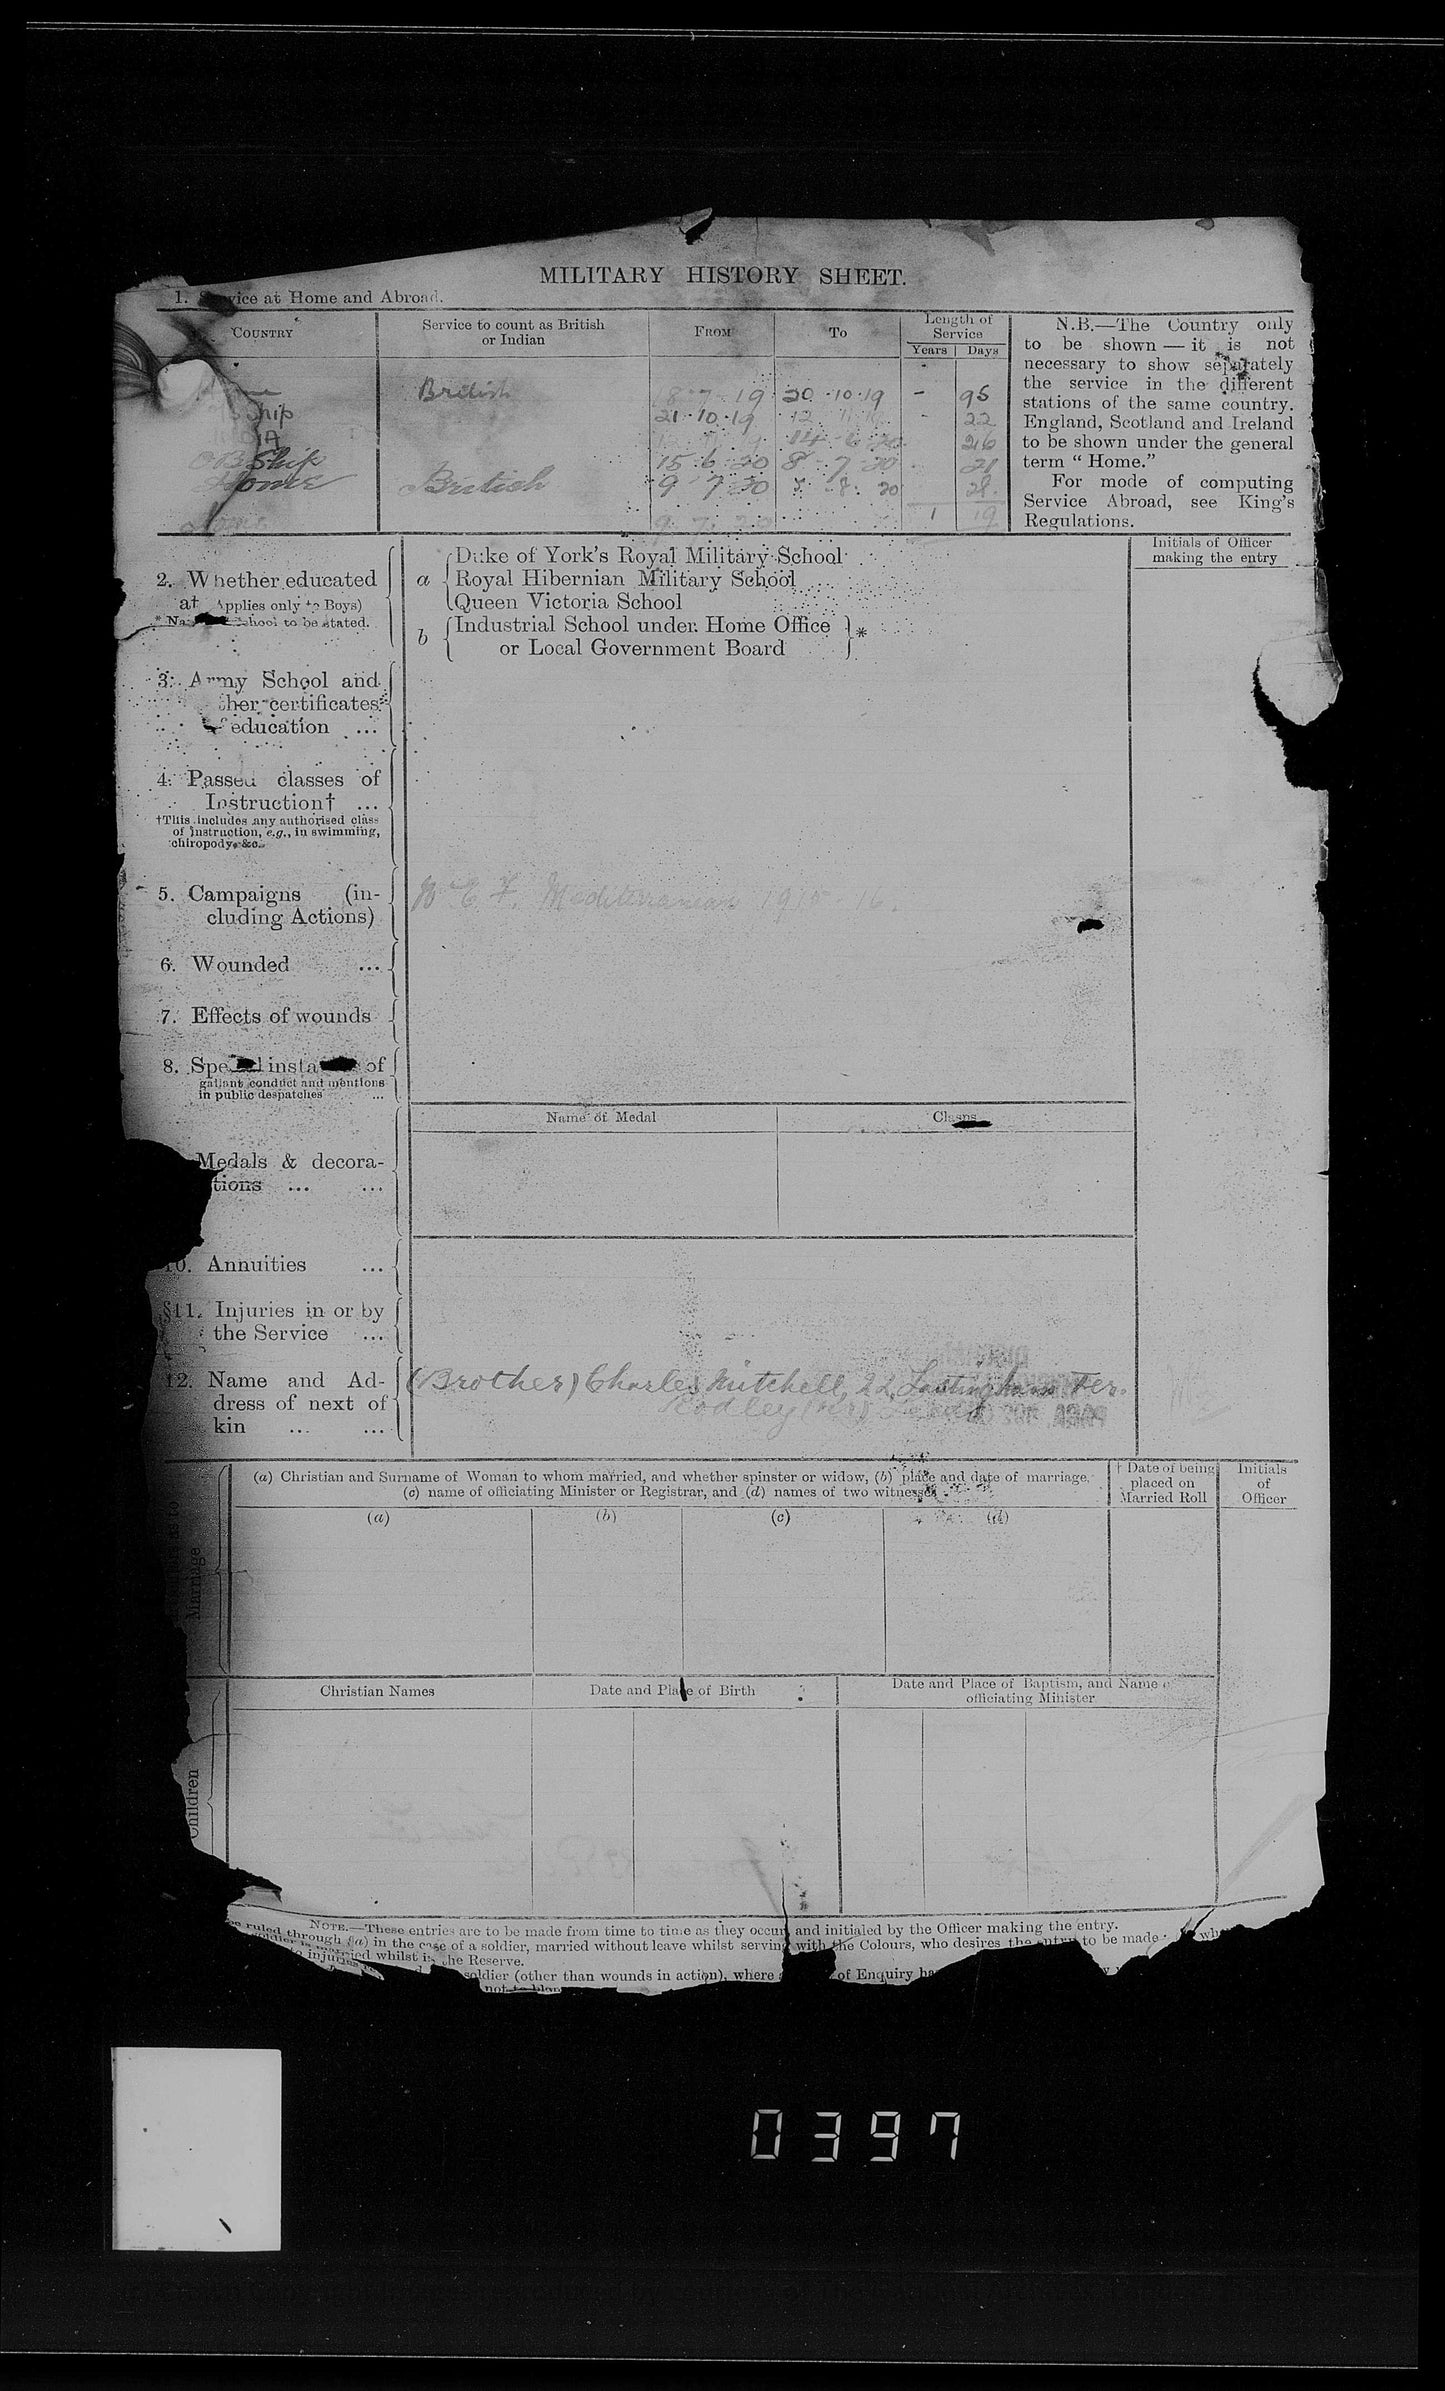 MILITARY HISTORY SHEET.
1. Service at Home and Abroad.
COUNTRY
Service to count as British
or Indian
FROM
TO
Length of
Service
Years
Days
British
18 · 7 · 19
20 · 10 · 19
-
95
Ship
21 · 10 · 19
-
22
14 · 6 · 20
OB Ship
15 · 6 · 20
8 · 7 · 20
Home
British
9 · 7 · 20
8 · 20
28
9 · 7 · 20
1
19
N.B.—The Country only
to be shown — it is not
necessary to show separately
the service in the different
stations of the same country.
England, Scotland and Ireland
to be shown under the general
term “ Home.”
For mode of computing
Service Abroad, see King's
Regulations.
Initials of Officer
making the entry
2. Whether educated
at (Applies only to Boys)
* Na School to be stated.
a
Duke of York's Royal Military School
Royal Hibernian Military School
Queen Victoria School
b
Industrial School under Home Office
or Local Government Board
*
3. Army School and
other certificates
of education ...
4. Passed classes of
Instruction† ...
†This includes any authorised class
of instruction, e.g., in swimming,
chiropody, &c.
5. Campaigns (in-
cluding Actions)
Mediterranean 1915 - 16.
6. Wounded ...
7. Effects of wounds
8. Special insta of
gallant conduct and mentions
in public despatches ...
Name of Medal
Clasps
Medals & decora-
tions ... ...
10. Annuities ...
§11. Injuries in or by
the Service ...
12. Name and Ad-
dress of next of
kin ... ...
(Brother) Charles Mitchell, 22, Lastingham Ter.
Rodley (Nr) Leeds
(a) Christian and Surname of Woman to whom married, and whether spinster or widow, (b) place and date of marriage,
(c) name of officiating Minister or Registrar, and (d) names of two witnesses
† Date of being
placed on
Married Roll
Initials
of
Officer
(a)
(b)
(c)
(d)
Marriage
Christian Names
Date and Place of Birth
Date and Place of Baptism, and Name
officiating Minister
Children
NOTE.—These entries are to be made from time to time as they occur, and initialed by the Officer making the entry.
be ruled through (a) in the case of a soldier, married without leave whilst serving with the Colours, who desires the entry to be made
married whilst in the Reserve.
soldier (other than wounds in action), where of Enquiry
0397